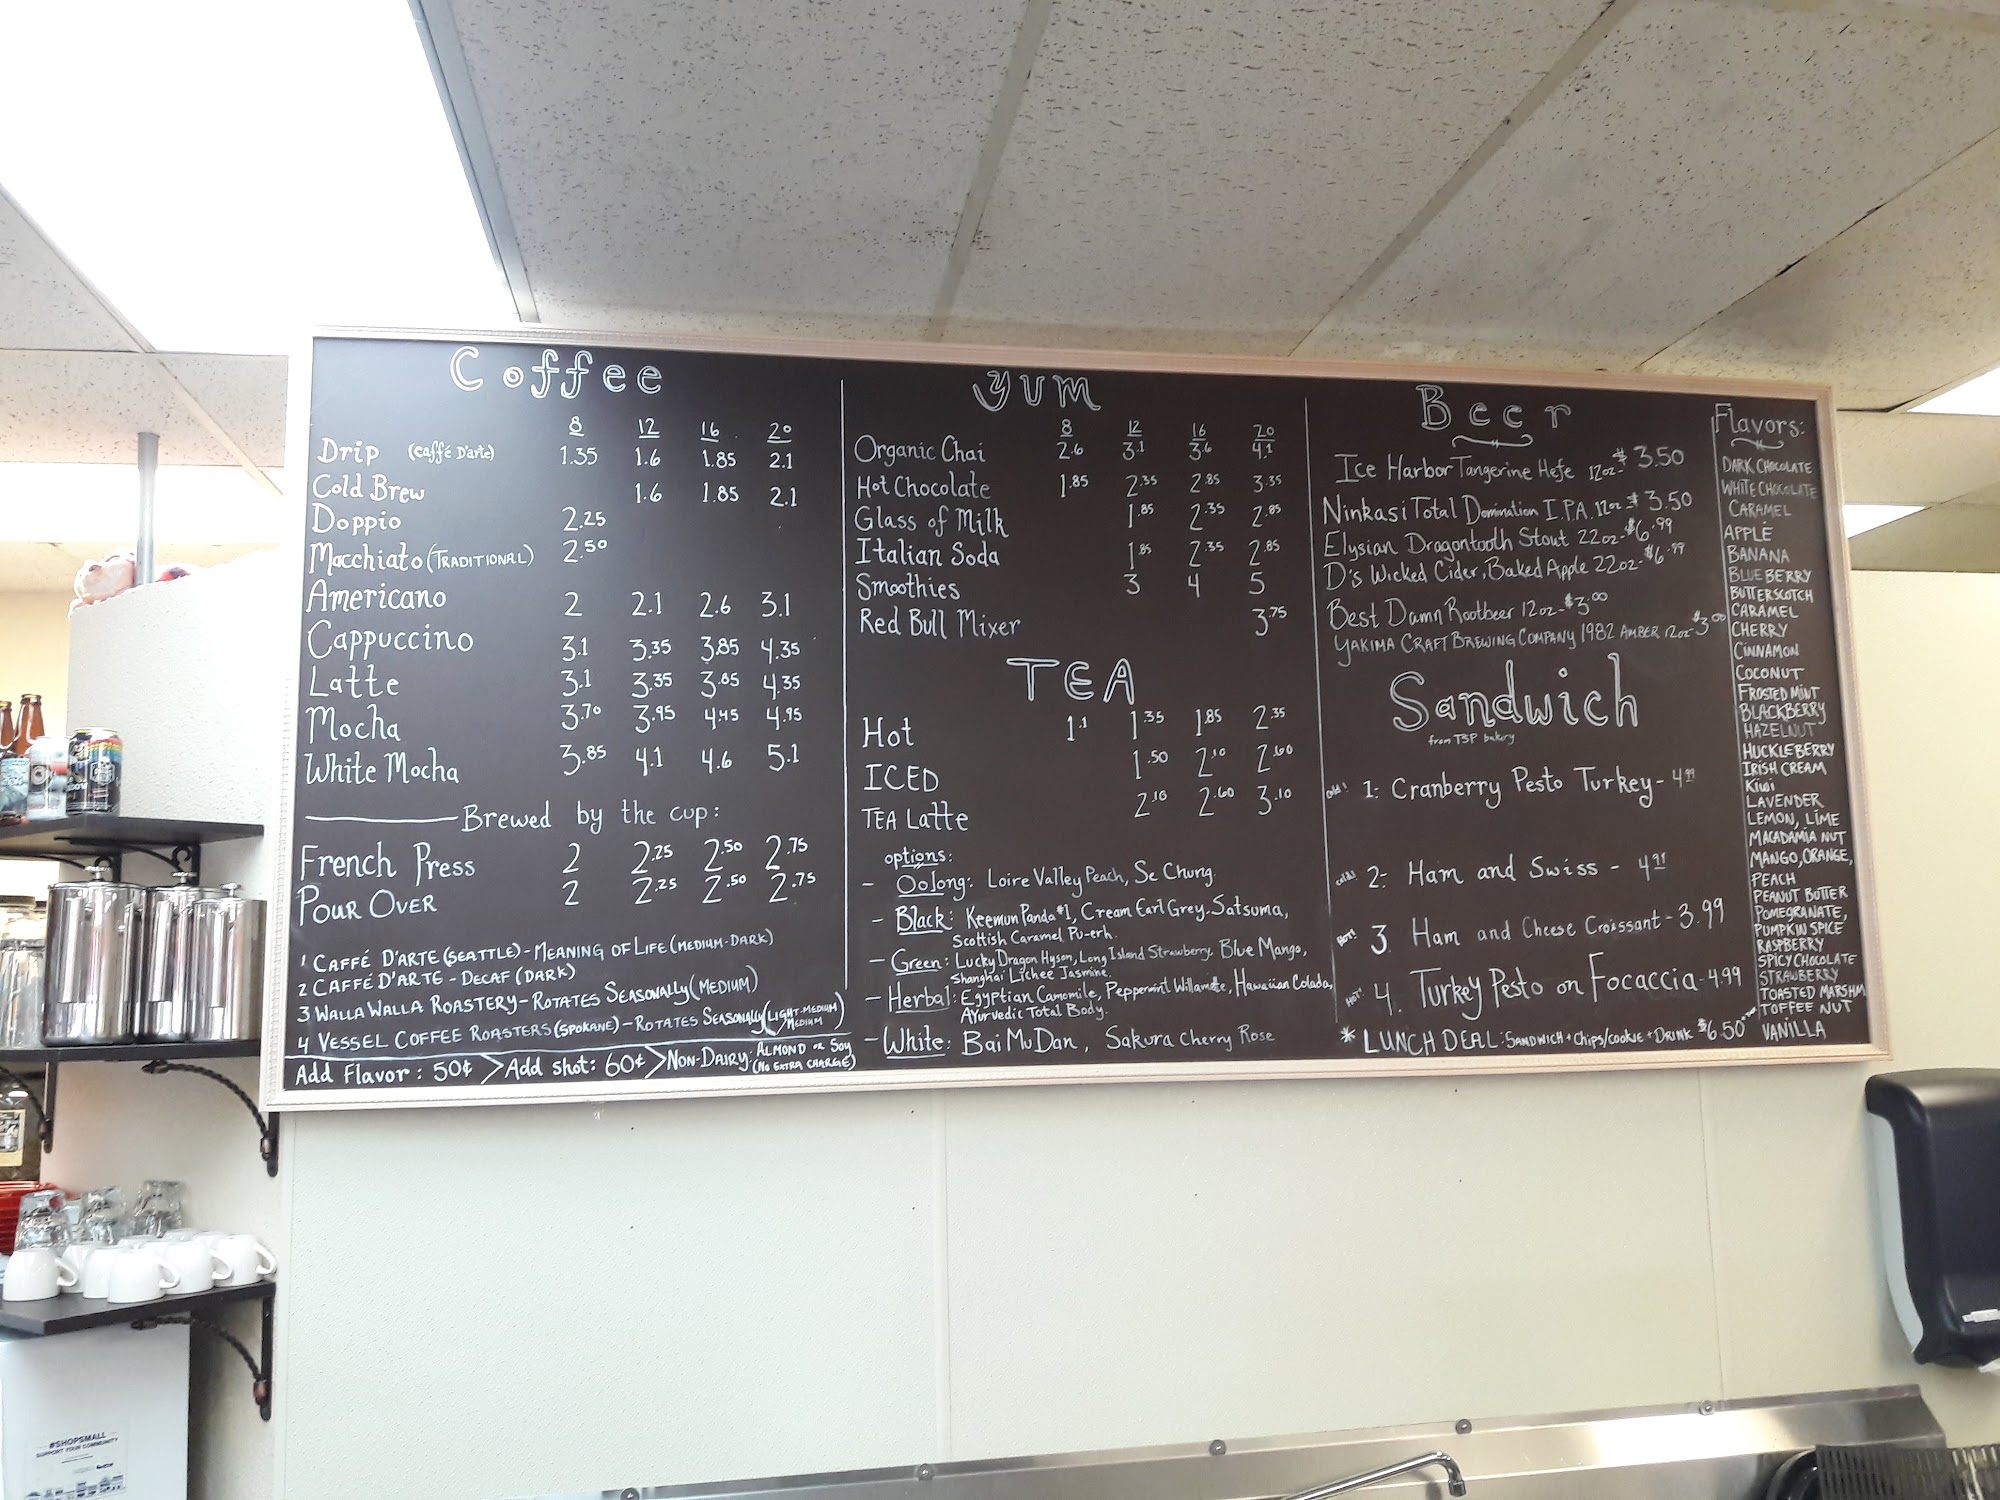 Coffee
8 12 16 20
Drip (Caffé D'arte) 1.35 1.6 1.85 2.1
Cold Brew 1.6 1.85 2.1
Doppio 2.25
Macchiato (TRADITIONAL) 2.50
Americano 2 2.1 2.6 3.1
Cappuccino 3.1 3.35 3.85 4.35
Latte 3.1 3.35 3.85 4.35
Mocha 3.70 3.95 4.45 4.95
White Mocha 3.85 4.1 4.6 5.1
Brewed by the cup:
French Press 2 2.25 2.50 2.75
POUR OVER 2 2.25 2.50 2.75
1 CAFFÉ D'ARTE (SEATTLE) - MEANING OF LIFE (MEDIUM-DARK)
2 CAFFÉ D'ARTE - DECAF (DARK)
3 WALLA WALLA ROASTERY - ROTATES SEASONALLY (MEDIUM)
4 VESSEL COFFEE ROASTERS (SPOKANE) - ROTATES SEASONALLY (LIGHT-MEDIUM MEDIUM)
Add flavor: 50¢ > Add shot: 60¢ > NON-DAIRY: ALMOND OR SOY
(NO EXTRA CHARGE)
YUM
8 12 16 20
Organic Chai 2.6 3.1 3.6 4.1
Hot Chocolate 1.85 2.35 2.85 3.35
Glass of Milk 1.85 2.35 2.85
Italian Soda 1.85 2.35 2.85
Smoothies 3 4 5
Red Bull Mixer 3.75
TEA
Hot 1.1 1.35 1.85 2.35
ICED 1.50 2.10 2.60
TEA Latte 2.10 2.60 3.10
options:
- Oolong: Loire Valley Peach, Se Chung.
- Black: Keemun Panda #1, Cream Earl Grey. Satsuma,
Scottish Caramel Pu-erh.
- Green: Lucky Dragon Hyson, Long Island Strawberry. Blue Mango,
Shanghai Lichee Jasmine.
- Herbal: Egyptian Camomile, Peppermint Willamette, Hawaiian Colada,
Ayurvedic Total Body.
- White: Bai Mu Dan, Sakura Cherry Rose
Beer
Ice Harbor Tangerine Hefe 12oz-$3.50
Ninkasi Total Domination I.P.A. 12oz-$3.50
Elysian Dragontooth Stout 22oz-$6.99
D's Wicked Cider, Baked Apple 22oz-$6.99
Best Damn Rootbeer 12oz-$3.00
YAKIMA CRAFT BREWING COMPANY 1982 AMBER 12oz-$3.00
Sandwich
from TSP bakery
cold! 1: Cranberry Pesto Turkey - 4.99
cold! 2: Ham and Swiss - 4.99
HOT! 3. Ham and Cheese Croissant - 3.99
HOT! 4. Turkey Pesto on Focaccia - 4.99
* LUNCH DEAL: SANDWICH + Chips/cookie + DRINK $6.50
Flavors:
DARK CHOCOLATE
WHITE CHOCOLATE
CARAMEL
APPLE
BANANA
BLUEBERRY
BUTTERSCOTCH
CARAMEL
CHERRY
CINNAMON
COCONUT
FROSTED MINT
BLACKBERRY
HAZELNUT
HUCKLEBERRY
IRISH CREAM
Kiwi
LAVENDER
LEMON, LIME
MACADAMIA NUT
MANGO, ORANGE,
PEACH
PEANUT BUTTER
POMEGRANATE,
PUMPKIN SPICE
RASPBERRY
SPICY CHOCOLATE
STRAWBERRY
TOASTED MARSHM
TOFFEE NUT
VANILLA
#SHOPSMALL
SUPPORT YOUR COMMUNITY